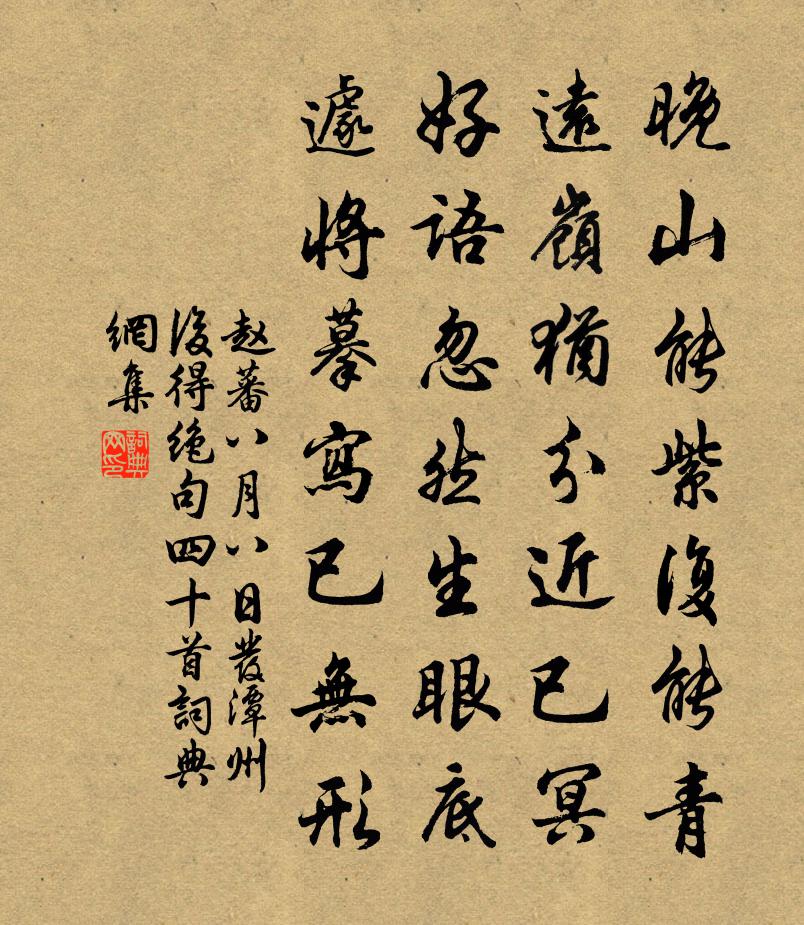 晚山能紫復能青
遠嶺猶分近已冥
好語忽然生眼底
遽將摹寫已無形
赵蕃八月八日發潭州
後得絶句四十首詞典
網集
詞典
网印